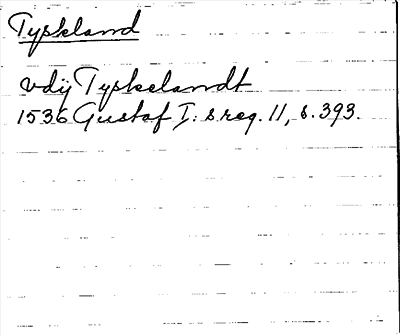 Tyskland
vdij Tyskelandt
1536 Gustaf I:s reg. 11, s. 393.